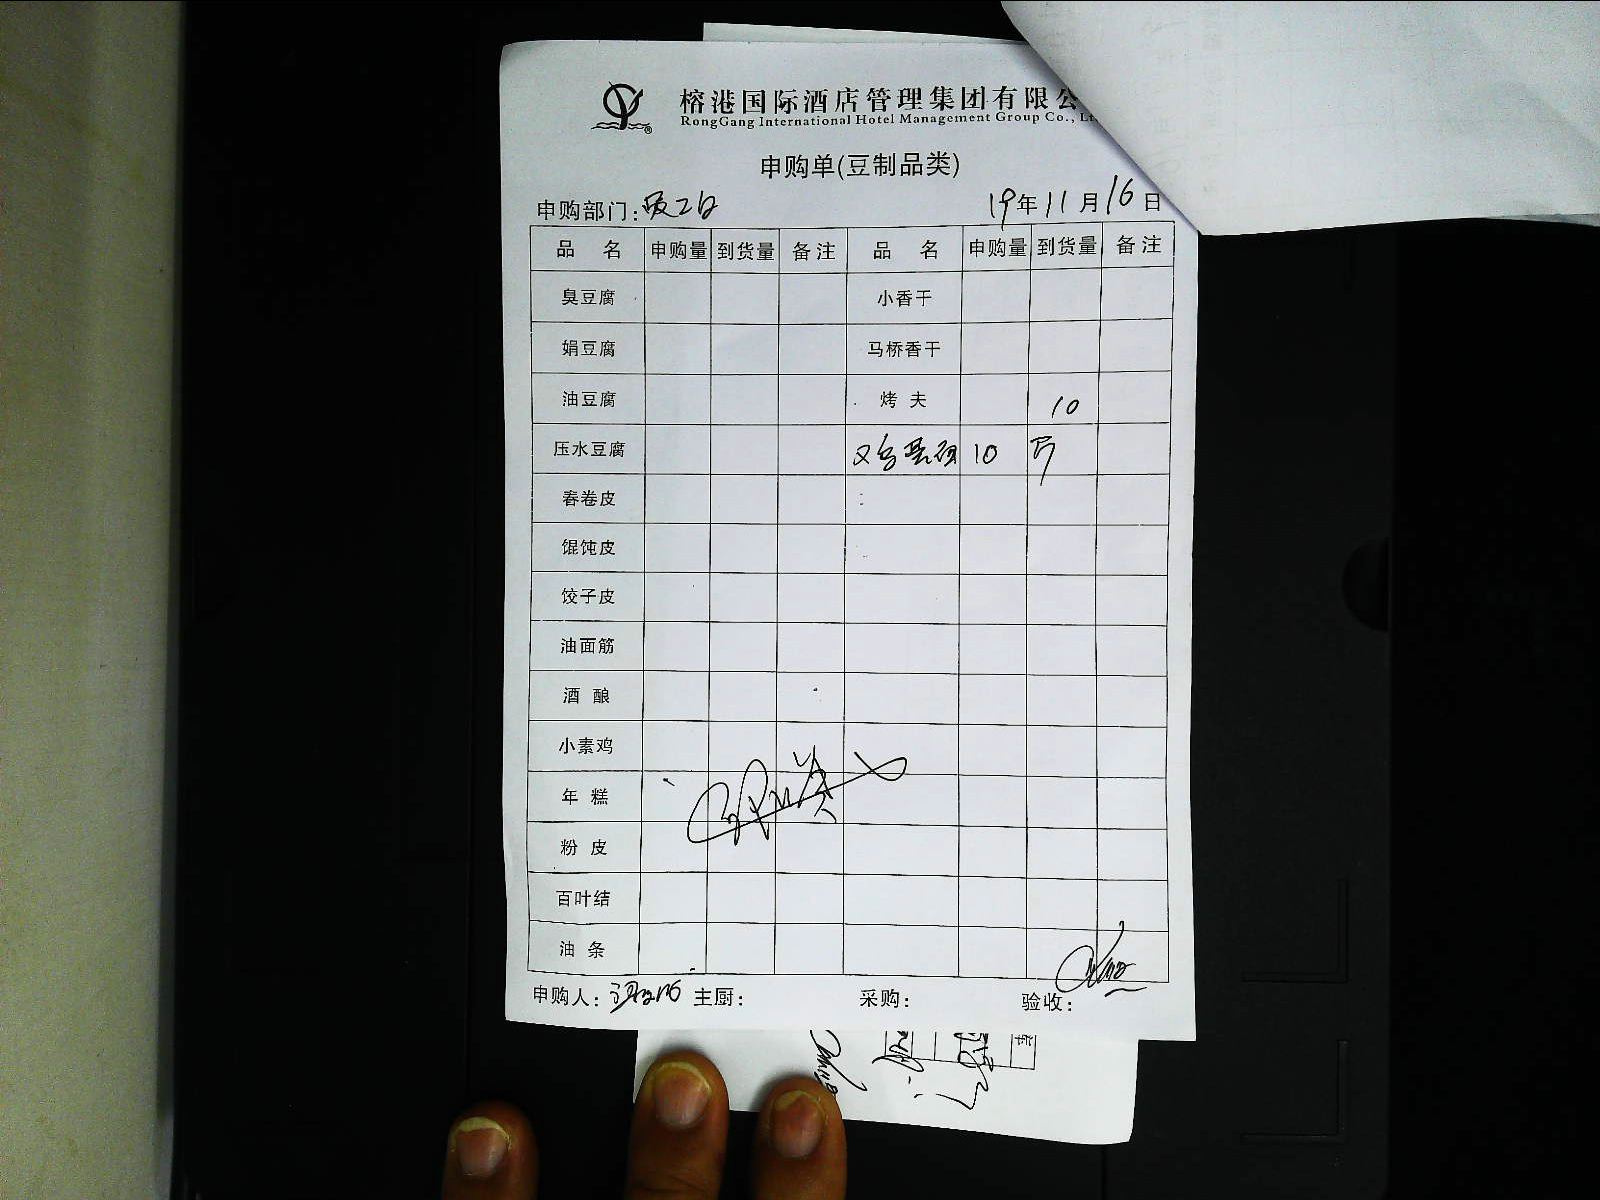 榕港国际酒店管理集团有限公
RongGang International Hotel Management Group Co., Lt
申购单(豆制品类)
申购部门: 19年11月16日
品 名 申购量 到货量 备注 品 名 申购量 到货量 备注
臭豆腐 小香干
娟豆腐 马桥香干
油豆腐 烤夫 10
压水豆腐 10
春卷皮
馄饨皮
饺子皮
油面筋
酒酿
小素鸡
年糕
粉皮
百叶结
油条
申购人: 主厨: 采购: 验收: